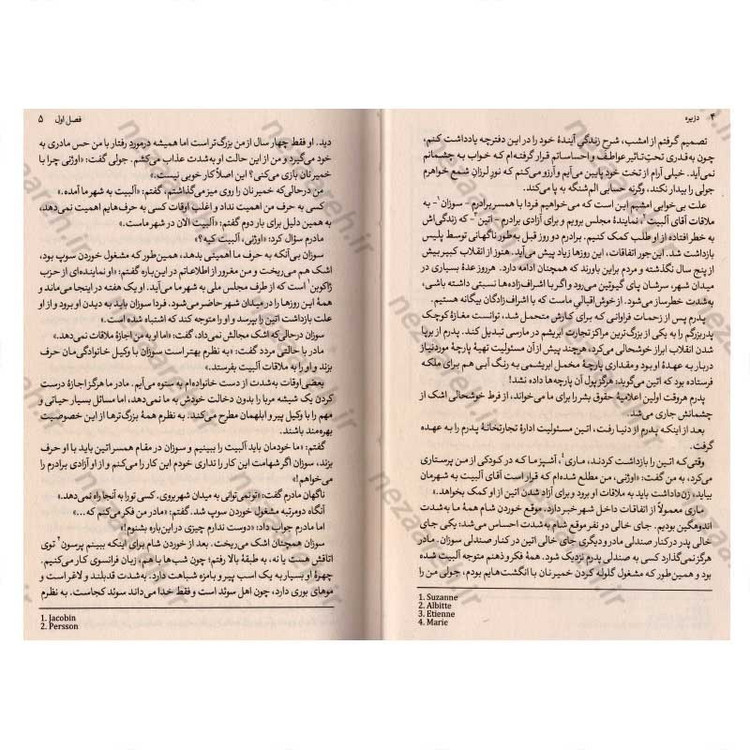 ۴ دزیره
تصمیم گرفتم از امشب، شرح زندگی آیندهٔ خود را در این دفترچه یادداشت کنم،
چون به‌قدری تحت‌تاثیر عواطف و احساساتم قرار گرفته‌ام که خواب به چشمانم
نمی‌آید. خیلی آرام از تخت خود پایین می‌آیم و آرزو می‌کنم که نور لرزانِ شمع خواهرم
جولی را بیدار نکند، وگرنه حسابی الم‌شنگه به پا می‌کند.
علت بی‌خوابی امشبم این است که می‌خواهیم فردا با همسر برادرم – سوزان¹ – به
ملاقات آقای آلبیت²، نمایندهٔ مجلس برویم و برای آزادی برادرم – اتین³ – که زندگی‌اش
به خطر افتاده از او طلب کمک کنیم. برادرم دو روز قبل به‌طور ناگهانی توسط پلیس
بازداشت شد. این‌جور اتفاقات، این روزها زیاد پیش می‌آید. هنوز از انقلاب کبیر بیش
از پنج سال نگذشته و مردم براین باورند که همچنان ادامه دارد. هرروز عدهٔ بسیاری در
میدان شهر، سرشان پای گیوتین می‌رود و اگر با اشراف‌زاده‌ها نسبتی داشته باشی،
به‌شدت خطرساز می‌شود. از خوش‌اقبالیِ ماست که با اشراف‌زادگان بیگانه هستیم.
پدرم پس از زحمات فراوانی که برای کارش متحمل شد، توانست مغازهٔ کوچک
پدربزرگم را به یکی از بزرگ‌ترین مراکز تجارت ابریشم در مارسی تبدیل کند. پدرم از برپا
شدن انقلاب ابراز خوشحالی می‌کرد، هرچند پیش از آن مسئولیت تهیهٔ پارچهٔ موردنیاز
دربار به عهدهٔ او بود و مقداری پارچهٔ مخمل ابریشمی به رنگ آبی هم برای ملکه
فرستاده بود که اتین می‌گوید: هرگز پول آن پارچه‌ها داده نشد!
پدرم هروقت اولین اعلامیهٔ حقوق بشر را برای ما می‌خواند، از فرط خوشحالی اشک از
چشمانش جاری می‌شد.
بعد از اینکه پدرم از دنیا رفت، اتین مسئولیت ادارهٔ تجارتخانهٔ پدرم را به عهده
گرفت.
وقتی‌که اتین را بازداشت کردند، ماری⁴، آشپز ما که در کودکی از من پرستاری
می‌کرد، به من گفت: «اوژنی، من مطلع شده‌ام که قرار است آقای آلبیت به شهرمان
بیاید، زن‌داداشت باید به ملاقات او برود و برای آزاد شدن اتین از او کمک بخواهد.»
ماری معمولاً از اتفاقات داخل شهر خبر دارد. موقع خوردن شام همهٔ ما به‌شدت
اندوهگین بودیم. جای خالی دو نفر موقع شام به‌شدت احساس می‌شد؛ یکی جای
خالی پدر در کنار صندلی مادر و دیگری جای خالی اتین در کنار صندلی سوزان. مادرم
هرگز نمی‌گذارد کسی به صندلی پدرم نزدیک شود. همهٔ فکر و ذهنم متوجه آلبیت شده
بود و همین‌طور که مشغول گلوله کردن خمیرنان با انگشت‌هایم بودم، جولی من را
1. Suzanne
2. Albitte
3. Etienne
4. Marie
فصل اول ۵
دید. او فقط چهار سال از من بزرگ‌تر است اما همیشه درمورد رفتار با من حس مادری به
خود می‌گیرد و من از این حالت او به‌شدت عذاب می‌کشم. جولی گفت: «اوژنی چرا با
خمیرنان بازی می‌کنی؟ این اصلاً کار خوبی نیست.»
من درحالی‌که خمیرنان را روی میز می‌گذاشتم، گفتم: «آلبیت به شهر ما آمده.»
کسی به حرف من اهمیت نداد و اغلب اوقات کسی به حرف‌هایم اهمیت نمی‌دهد،
به همین دلیل برای بار دوم گفتم: «آلبیت الان در شهر ماست.»
مادرم سؤال کرد: «اوژنی، آلبیت کیه؟»
سوزان بی‌آنکه به حرف ما اهمیتی بدهد، همین‌طور که مشغول خوردن سوپ بود،
اشک هم می‌ریخت و من مغرور از اطلاعاتم در این‌باره گفتم: «او نماینده‌ای از حزب
ژاکوبن¹ است که از طرف مجلس ملی به شهر ما می‌آید. او یک هفته در اینجا می‌ماند و
همهٔ این روزها را در میدان شهر حاضر می‌شود. فردا سوزان باید به دیدن او برود و از او
علت بازداشت اتین را بپرسد و او را متوجه کند که اشتباه شده است.»
سوزان درحالی‌که اشک مجالش نمی‌داد، گفت: «اما او به من اجازهٔ ملاقات نمی‌دهد.»
مادر با حالتی مردد گفت: «به نظرم بهتر است سوزان با وکیل خانوادگی‌مان حرف
بزند و او را به ملاقات آلبیت بفرستد.»
بعضی اوقات به‌شدت از دست خانواده‌ام به ستوه می‌آیم. مادر ما هرگز اجازهٔ درست
کردن یک شیشه مربا را بدون دخالت خودش به ما نمی‌دهد، اما مسائل بسیار حیاتی و
مهم را با وکیل پیر و ابلهمان مطرح می‌کند. به نظرم همهٔ بزرگ‌ترها از این خصوصیت
بهره‌مند باشند.
گفتم: «ما خودمان باید آلبیت را ببینیم و سوزان در مقام همسر اتین باید با او حرف
بزند، سوزان اگر شهامت این کار را نداری خودم این کار را می‌کنم و از او آزادی برادرم را
می‌خواهم!»
ناگهان مادرم گفت: «تو نمی‌توانی به میدان شهر بروی. کسی تو را به آنجا راه نمی‌دهد.»
آنگاه دومرتبه مشغول خوردن سوپ شد. گفتم: «مادر من فکر می‌کنم که…»
اما مادرم جواب داد: «دوست ندارم چیزی در این‌باره بشنوم!»
سوزان همچنان اشک می‌ریخت. بعد از خوردن شام برای اینکه ببینم پرسون² توی
اتاقش هست یا نه، به طبقهٔ بالا رفتم؛ چون شب‌ها با هم، زبان فرانسوی کار می‌کنیم.
چهرهٔ او بسیار به یک اسب پیر و بامزه شباهت دارد. به‌شدت قدبلند و لاغر است و
موهای بوری دارد، چون اهل سوئد است و فقط خدا می‌داند سوئد کجاست. به نظرم
1. Jacobin
2. Persson
nezaareh.ir